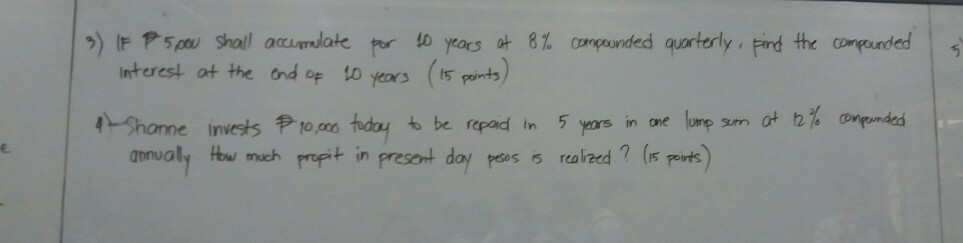 3) IF ₱5,000 shall accumulate for 10 years at 8% compounded quarterly, find the compounded
interest at the end of 10 years (15 points)
4) Shanne invests ₱10,000 today to be repaid in 5 years in one lump sum at 12% compounded
annually How much propit in present day pesos is realized? (15 points)
5)
e